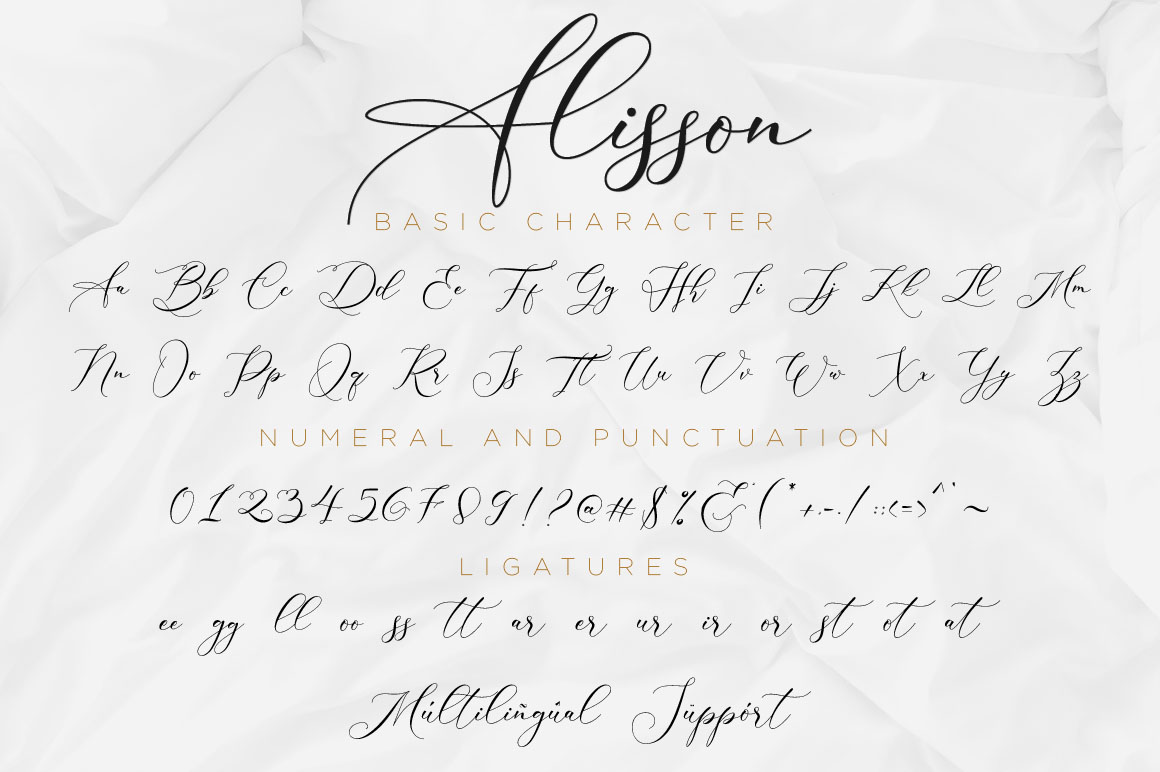 Alisson
BASIC CHARACTER
Aa Bb Cc Dd Ee Ff Gg Hh Ii Jj Kk Ll Mm
Nn Oo Pp Qq Rr Ss Tt Uu Vv Ww Xx Yy Zz
NUMERAL AND PUNCTUATION
0123456789!?@#$%&(*+.-./::<=>^`~
LIGATURES
ee gg ll oo ss tt ar er ur ir or st ot at
Múltiliñgúal Süppórt